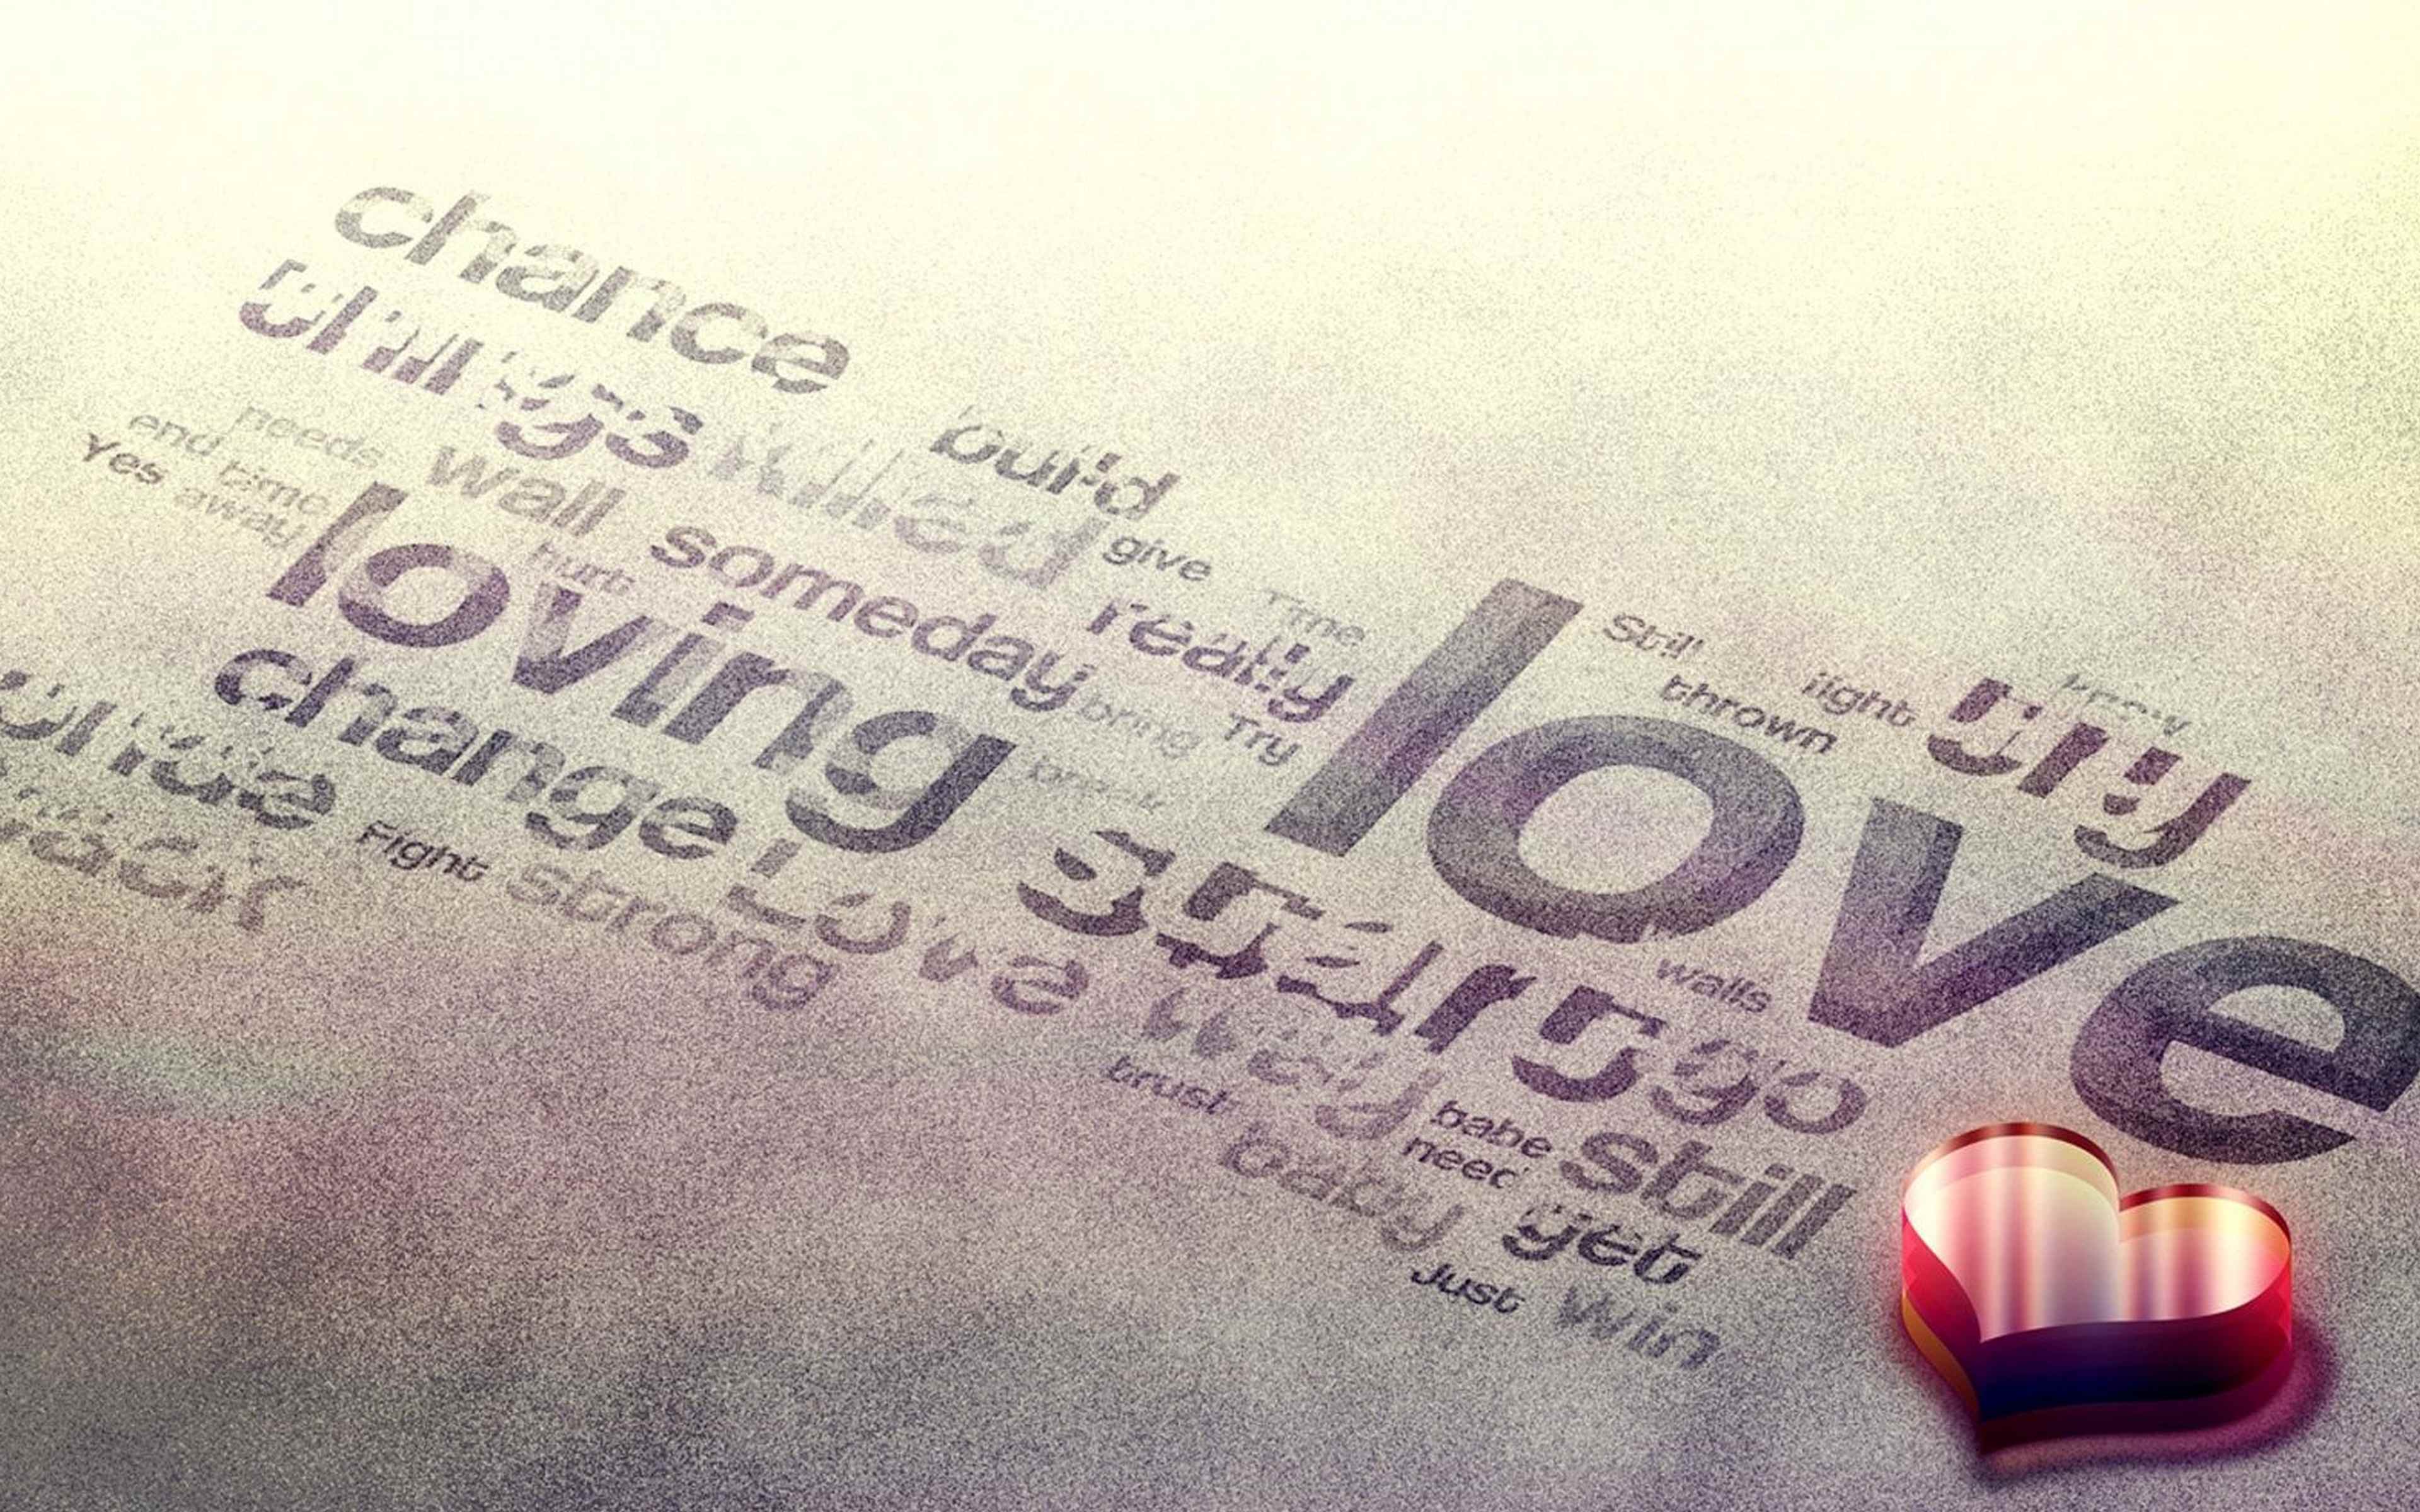 chance
things
build
needs
end
Yes
time
away
wall
killed
give
loving
hurt
someday
really
The
bring
Try
love
Still
thrown
light
try
know
change
once
back
Fight
strong
Love
start
walls
go
way
trust
babe
need
still
baby
yet
Just
win